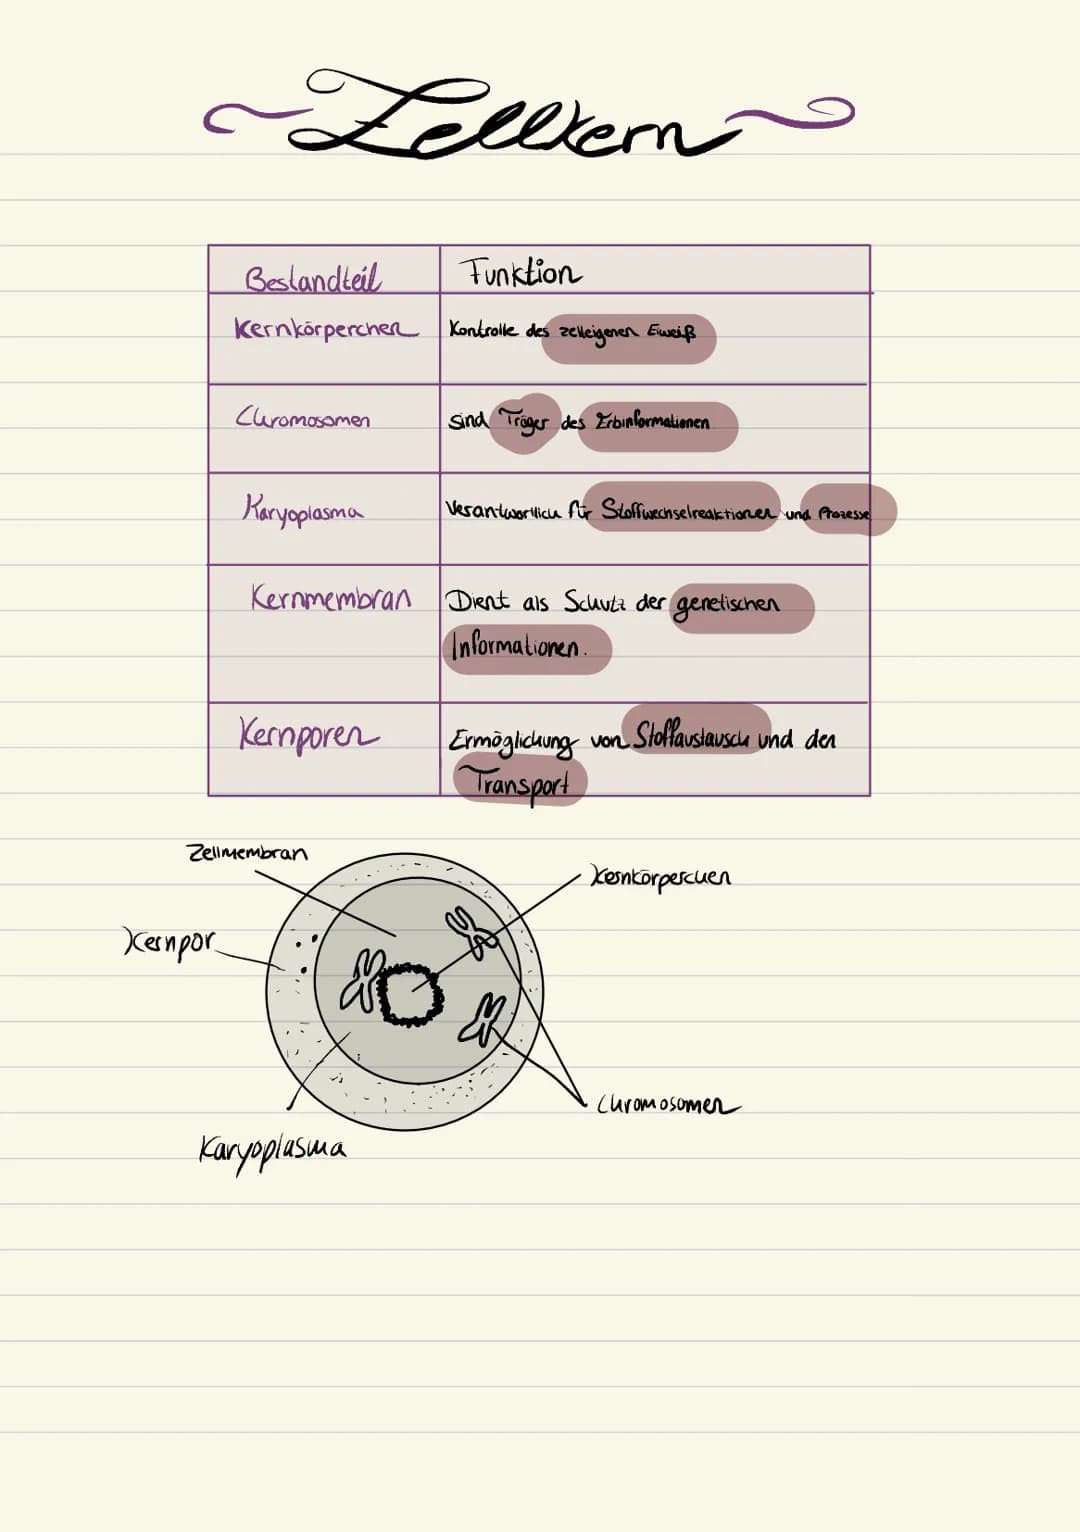 Zellkern
Bestandteil
Funktion
Kernkörperchen
Kontrolle des zelleigenen Eiweiß
Chromosomen
sind Träger des Erbinformationen
Karyoplasma
Verantwortlich für Stoffwechselreaktionen und Prozesse
Kernmembran
Dient als Schutz der genetischen
Informationen.
Kernporen
Ermöglichung von Stoffaustausch und den
Transport
Zellmembran
Kernkörperchen
Kernpor
Chromosomen
Karyoplasma